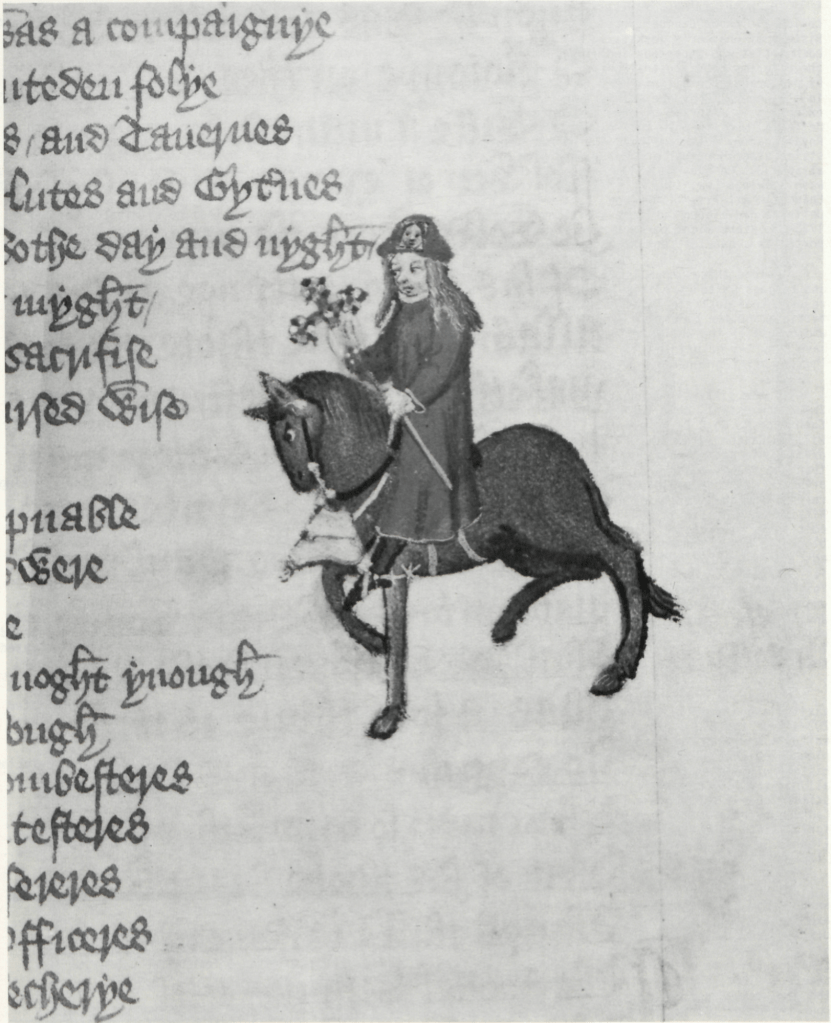 was a compaignye
uteden folye
s / and Tauernes
lutes and Gyternes
bothe day and nyght /
myght /
sacrifise
ursed wise
pnable
were
e
noght ynough
ough
ombesteres
testeres
fereres
officeres
echerye